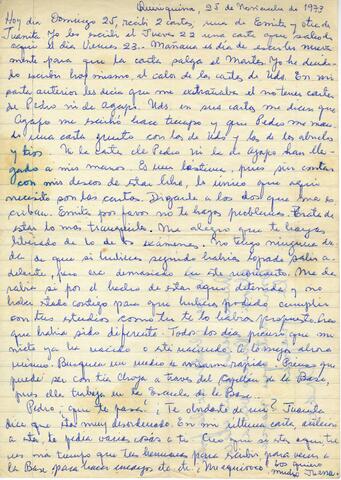 Quiriquina, 25 de Noviembre de 1973
Hoy día Domingo 25, recibí 2 cartas, una de Emita y otra de
Juanita. Yo les escribí el Jueves 22 una carta que salió de
aquí el día Viernes 23. Mañana es día de escribir nuevamente
para que la carta salga el Martes. Yo he decidido
escribir hoy mismo, al calor de las cartas de Uds. En mi
carta anterior les decía que me extrañaba el no tener cartas
de Pedro ni de Agapo. Uds en sus cartas me dicen que
Agapo me escribió hace tiempo y que Pedro me mandó
una carta junto con las de Uds y las de los abuelos
y tíos. Ni la carta de Pedro ni la de Agapo han llegado
a mis manos. Es una lástima, pues sin contar
con mis deseos de estar libre, lo único que aquí
necesito son las cartas. Díganle a los dos que me escriban.
Emita por favor no te hagas problemas. Trata de
estar lo más tranquila. Me alegro que te hayas
liberado de lo de los exámenes. No tengo ninguna duda
de que si hubieses seguido habrías logrado salir adelante,
pero era demasiado en este momento. Me da
rabia si por el hecho de estar aquí detenido y no
haber estado contigo para que hubieses podido cumplir
con tus estudios como tú te lo habías propuesto.
que habría sido diferente. Todos los días pienso que mi
nieto ya ha nacido o está naciendo, a lo mejor ahora
mismo. Busquen un medio de avisarme rápido. Creo que
puede ser con tía Choja a través del Capellán de la Base,
pues ella trabaja en la Escuela de la Base.
Pedro, ¿que te pasa? ¿Te olvidaste de mí? Juanita
dice que estás muy desordenado. En mi última carta, anterior
a ésta, te pedía varias cosas a ti. Creo que si estás aquí tienes
más tiempo que tus hermanas para escribir, para venir a
la Base para hacer encargos etc etc. Me equivoco? Los quiero
mucho